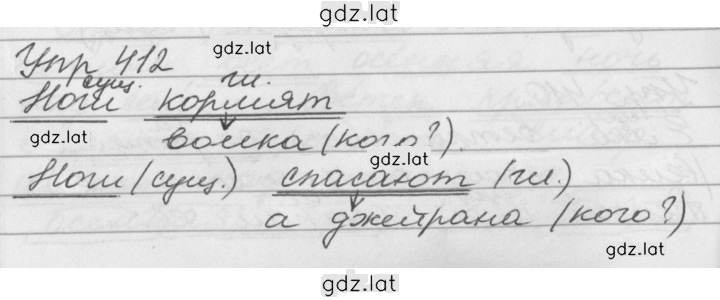 gdz.lat
Упр 412
gdz.lat
сущ. гл.
Ноги кормят
gdz.lat
волка (кого?)
gdz.lat
Ноги (сущ.) спасают (гл.)
а джейрана (кого?)
gdz.lat
gdz.lat